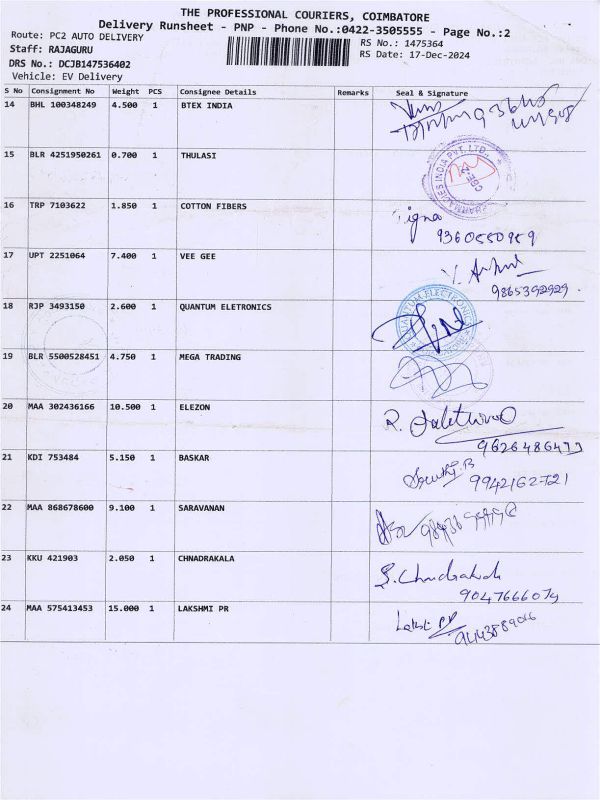 THE PROFESSIONAL COURIERS, COIMBATORE
Delivery Runsheet - PNP - Phone No.:0422-3505555 - Page No.:2
Route: PC2 AUTO DELIVERY
RS No.: 1475364
Staff: RAJAGURU
RS Date: 17-Dec-2024
DRS No.: DCJB147536402
Vehicle: EV Delivery
S No Consignment No Weight PCS Consignee Details Remarks Seal & Signature
14 BHL 100348249 4.500 1 BTEX INDIA
15 BLR 4251950261 0.700 1 THULASI
PHARMACIES INDIA PVT. LTD.
16 TRP 7103622 1.850 1 COTTON FIBERS
9360550959
17 UPT 2251064 7.400 1 VEE GEE
9865392929
18 RJP 3493150 2.600 1 QUANTUM ELETRONICS
QUANTUM ELECTRONICS
19 BLR 5500528451 4.750 1 MEGA TRADING
20 MAA 302436166 10.500 1 ELEZON
R.
9626486477
21 KDI 753484 5.150 1 BASKAR
9942162721
22 MAA 868678600 9.100 1 SARAVANAN
23 KKU 421903 2.050 1 CHNADRAKALA
S. Chndrakala
9047666074
24 MAA 575413453 15.000 1 LAKSHMI PR
9443589066